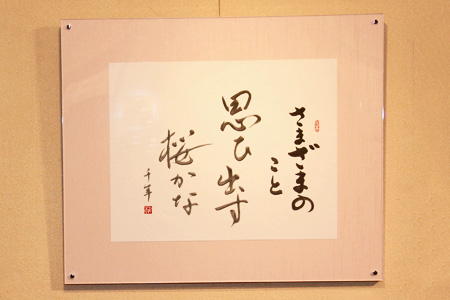 さまざまの
こと
思ひ出す
桜かな
千草